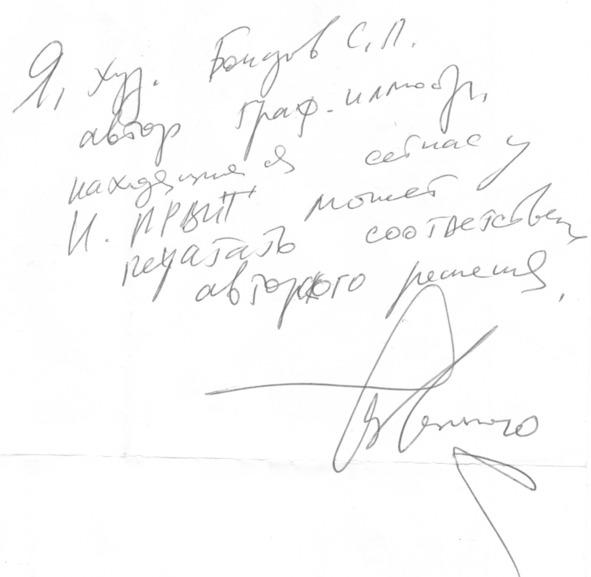 Я, худ. Бондов С.П.
автор граф. иллюстр.
находящиеся сейчас у
И. может
печатать соответствен
авторского решения.